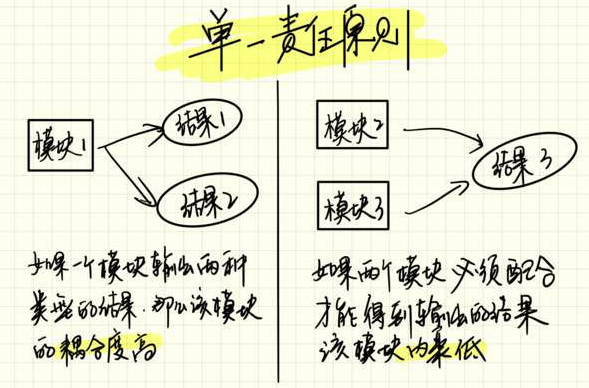 单一责任原则
模块1
结果1
结果2
如果一个模块输出两种
类型的结果,那么该模块
的耦合度高
模块2
模块3
结果3
如果两个模块必须配合
才能得到输出的结果
该模块内聚低